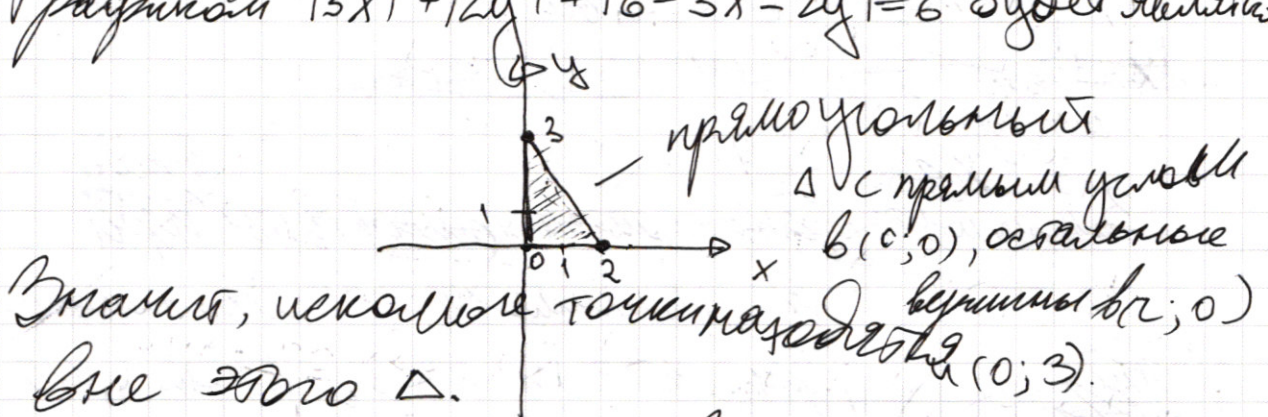 Графиком |3x|+|2y|+|6-3x-2y|=6 будет являться
y
3
прямоугольный
Δ с прямым углом
1
в (0;0), остальные
0 1 2 x
вершины в (2;0)
Значит, искомые точки находятся
и (0;3).
вне этого Δ.